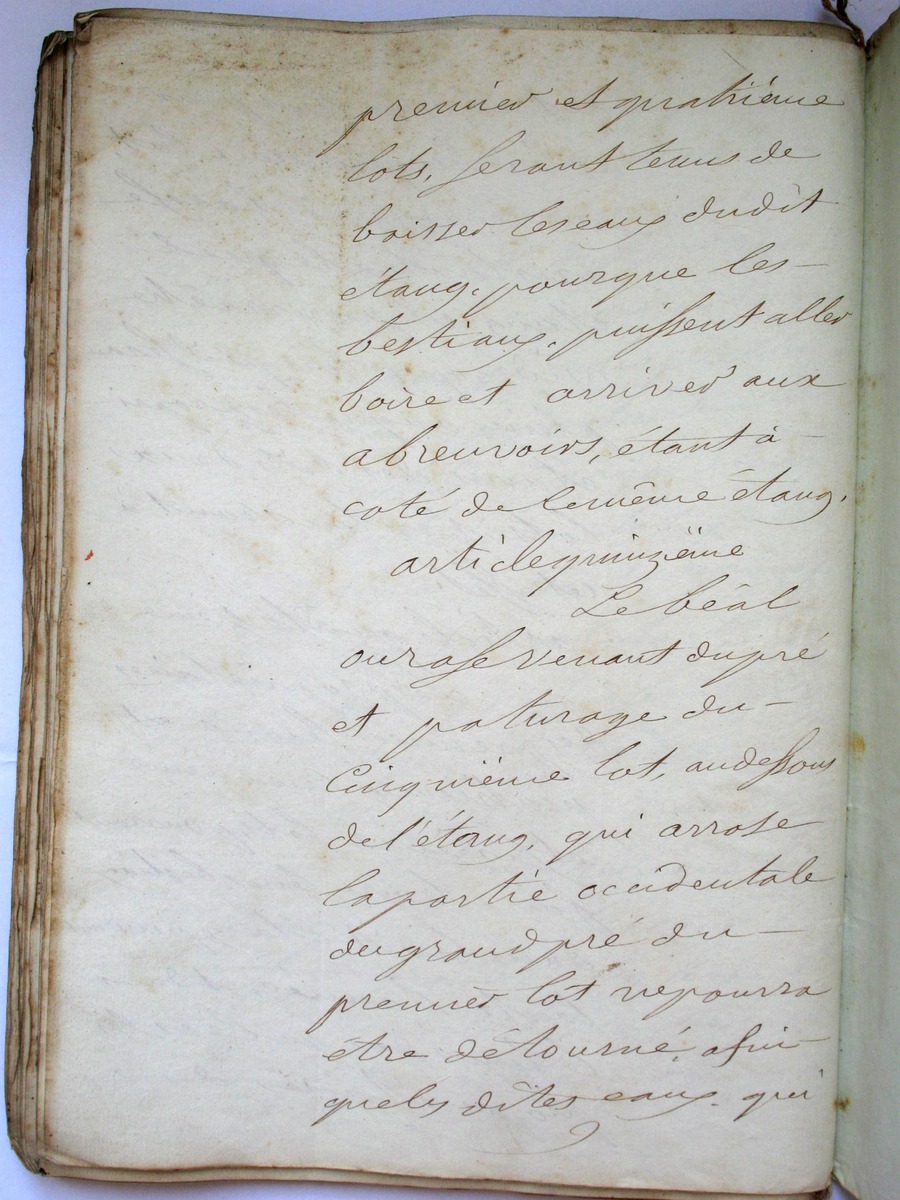 premier et quatriéme
lots, seront tenus de
baisser les eaux dudit
étang, pourque les -
bestiaux, puissent aller
boire et arriver aux
abreuvoirs, étant à -
coté de le même étang.
article quinziëme
Le béal
ou rase venant du pré
et paturage du -
Cinquiëme lot, au dessous
de l'étang, qui arrose
la partie occidentale
du grand pré du -
premier lot ne pourra
être détourné, afin -
que les dites eaux qui